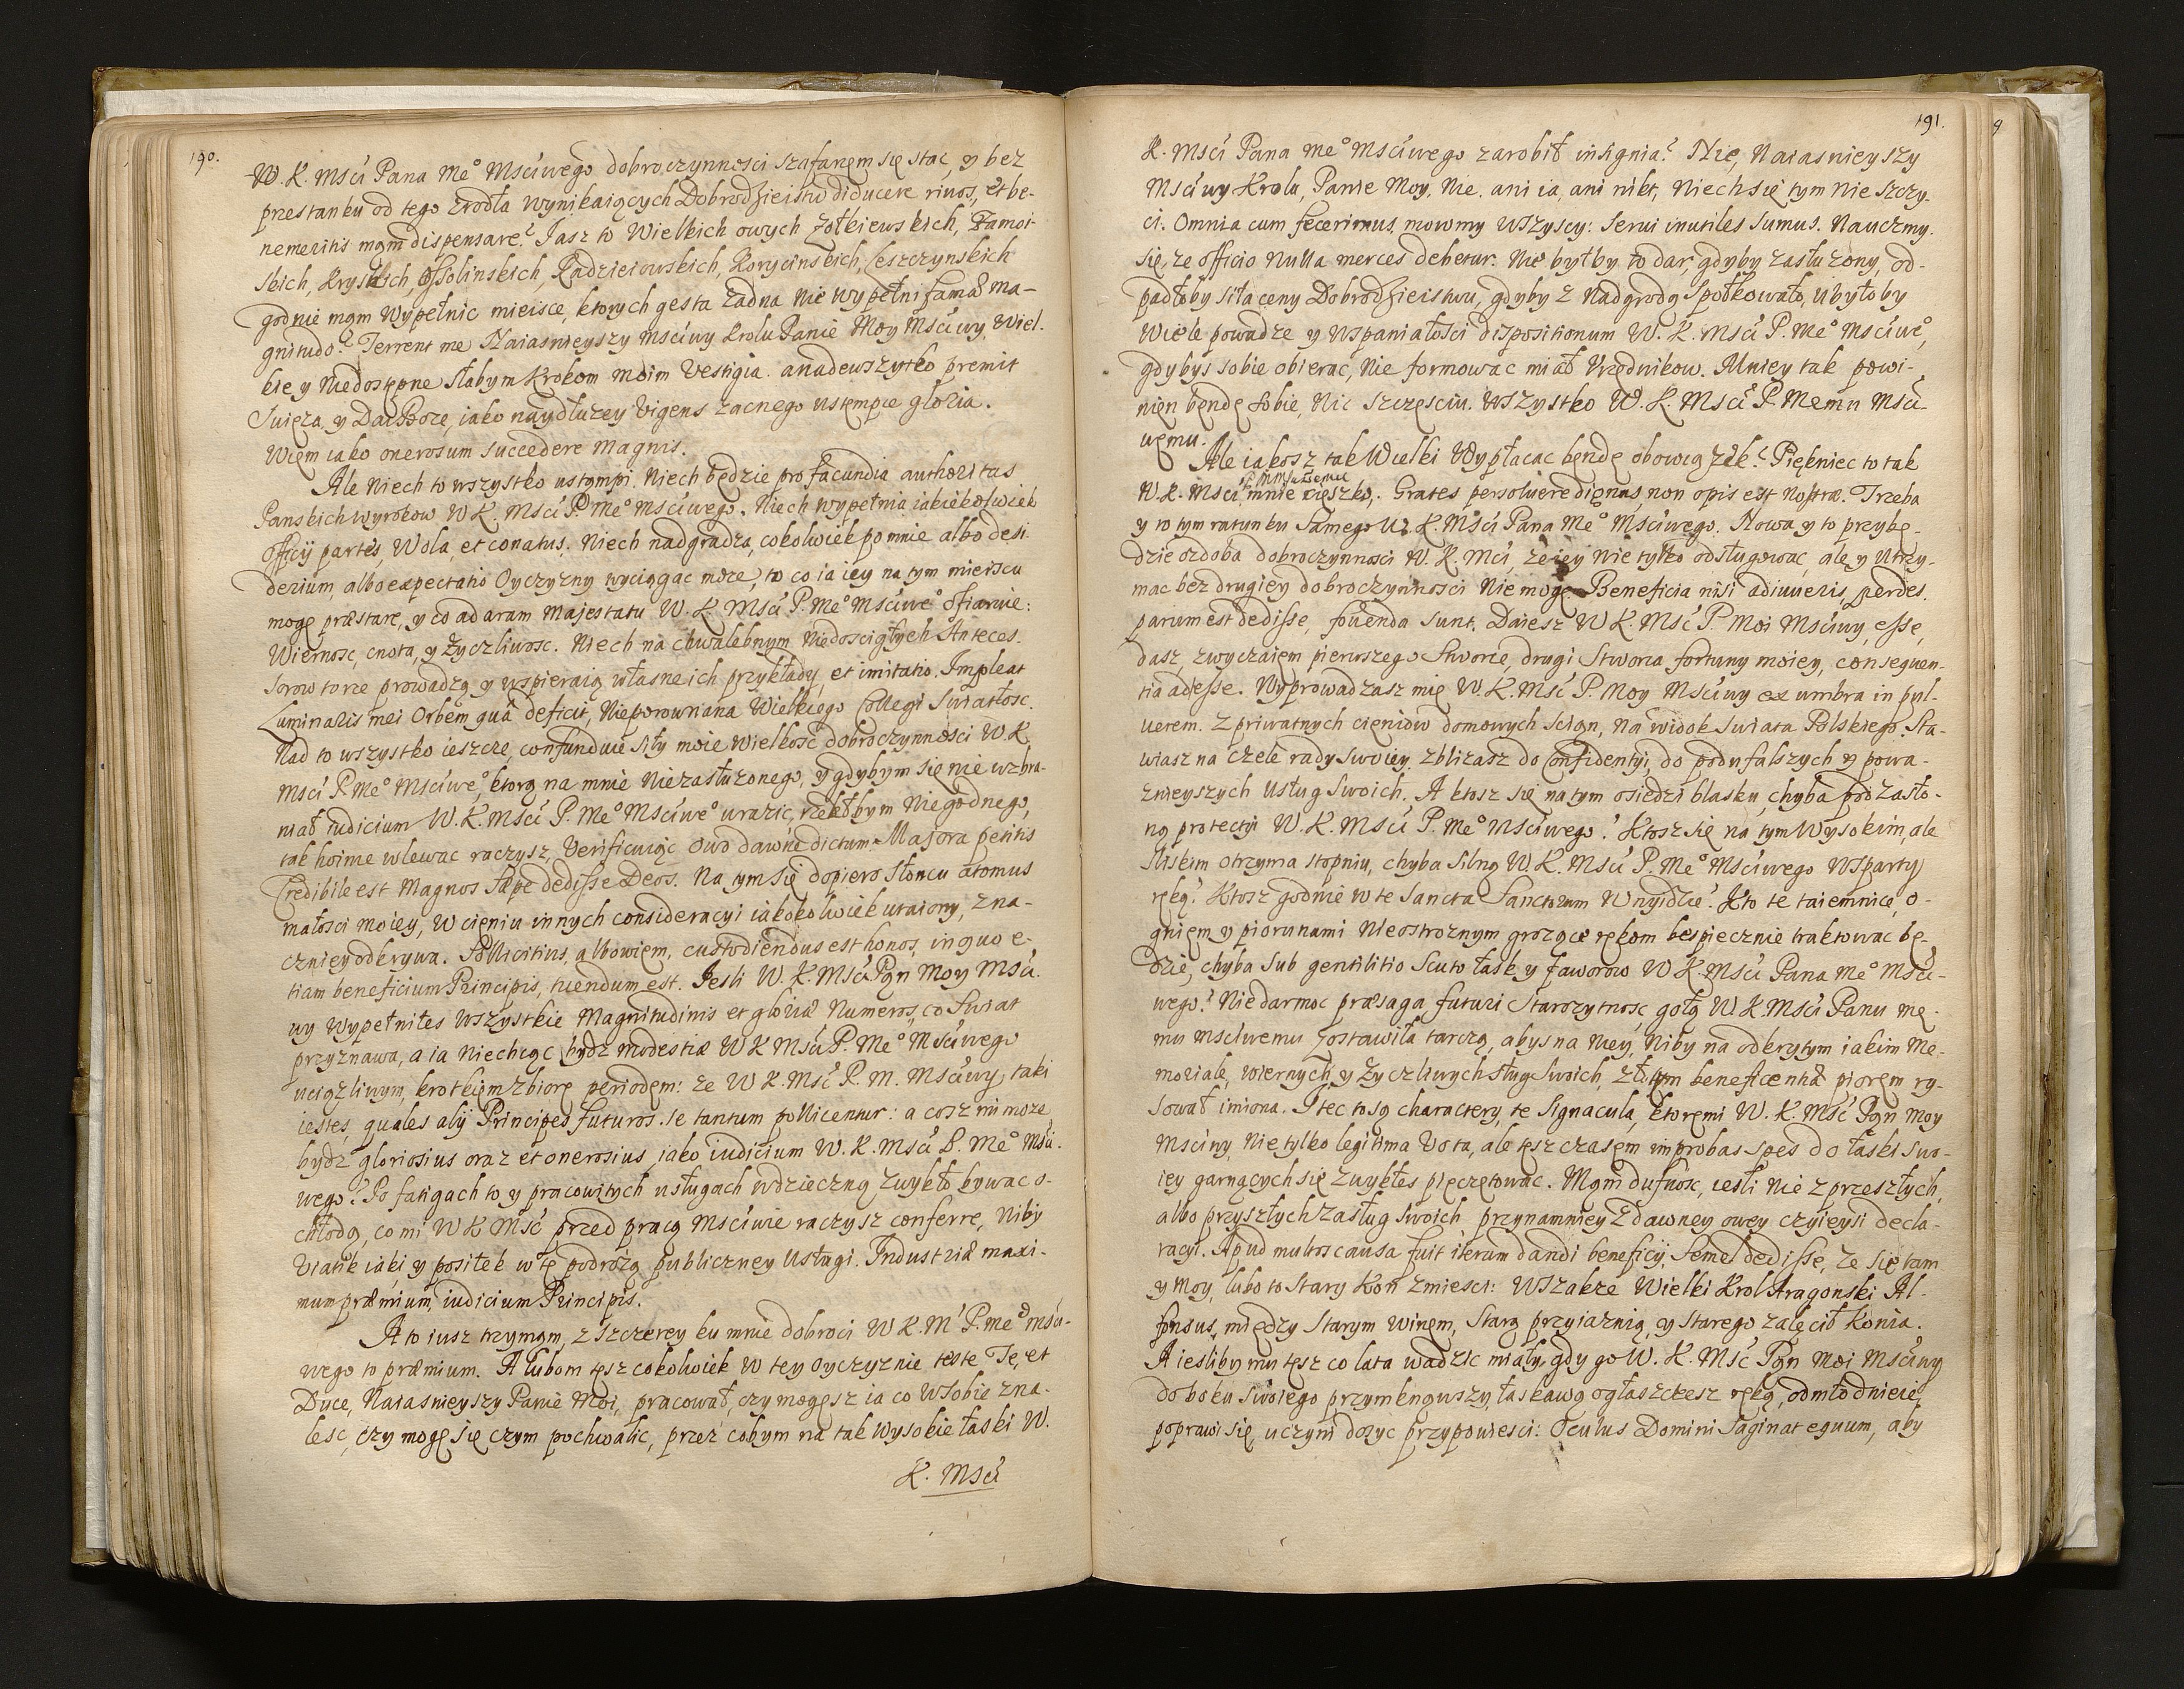 190.
W. K. Msći Pana Me° Msćiwego dobroczynnosci szafarzem się stac, y bez
przestanku od tego zrodła wynikaiących Dobrodzieistw diducere riuos, et be-
nemeritis mąm dispensare? Jasz to Wielkich owych Zołkiewskich, Zamoi-
skich, Kryskich, Ossolinskich, Radzieiowskich, Korycinskich, Leszczynskich
godnie mąm wypełnic mieisce, ktorych gesta zadna nie wypełni famæ ma-
gnitudo? Terrent me Naiasnieyszy Msciwy Krolu Panie Moy Msciwy, Wiel-
kie y niedostępne słabym krokom moim Vestigia. a nadewszytko premit
Swieza, y Dai Boze, iako naydłuzey Vigens zacnego ustempce gloria.
Wiem iako onerosum succedere Magnis.
Ale niech to wszystko ustąmpi. Niech będzie pro facundia authoritas
Panskich wyrokow W K. Msći P. Me° Msciwego. Niech wypełnia iakiekolwiek
officij partes, Wola et conatus. Niech nadgradza, cokolwiek po mnie albo desi
derium, albo expectatio Oyczyzny wyciągac moze, to co ia iey na tym mieiscu
mogę præstare, y co ad aram Majestatu W. K Msći P. Me° Msciwe° ofiaruię:
Wiernosc, cnota, y zyczliwosc. Niech na chwalebnym niedoscigłych Anteces-
sorow torze prowadzą y wspieraią własne ich przykłady, et imitatio. Impleat
Luminaris mei Orbem, quâ deficit, Nieporownana Wielkiego Collegi Swiatłosc.
Nad to wszystko ieszcze, confunduie siły moie wielkosć dobroczynnosci W K.
Msći P. Me° Msćiwe°, ktorą na mnie niezasłuzonego, y gdybym się nie wzbra-
niał iudicium W. K. Msći P. Me° Msćiwe° urazic, rzekłbym niegodnego,
tak hoinie wlewac raczysz, Verificuiąc owo dawne dictum: Majora petitis
Credibile est Magnos sæpe dedisse Deos. Na tym się dopiero Słoncu atomus
małosci moiey, w cieniu innych consideracyi iakokolwiek utaiony, zna-
czniey odkrywa. Sollicitius, albowiem, custodiendus est honos, in quo e-
tiam beneficium Principis, tuendum est. Jesli W. K. Msći Pąn Moy Msći-
wy wypełniłes wszystkie Magnitudinis et gloriæ Numeros, co Swiat
przyznawa, a ia niechcąc bydz modestiæ W K Msći P. Me° Msćiwego
uciązliwym, krotkiem zbiorę periodem: ze W K. Msć P. M. Msćiwy taki
iestes, quales alij Principes futuros se tantum pollicentur: a cosz mi moze
bydz gloriosius oraz et onerosius, iako iudicium W. K. Msći P. Me° Msći-
wego? Po fatigach to y pracowitych usługach wdzieczną zwykło bywac o-
chłodą, co mi W K Msć przed pracą Msćiwie raczysz conferre, niby
Viatik iaki, y posiłek w tę podrożą publiczney Usługi. Industriæ maxi-
mum præmium, iudicium Principis.
A to iusz trzymąm, z szczerey ku mnie dobroci W K. M P. me° msći-
wego to præmium. A lubom tesz cokolwiek w tey oyczyznie teste Te, et
Duce, Naiasnieyszy Panie Moi, pracował, czy mogęsz ia co w sobie zna-
lesc, czy mogę się czym pochwalic, przez cobym na tak wysokie łaski W.
K. Msći
191.
K. Msći Pana me° Msćiwego zarobił insignia? Nie, Naiasnieyszy
Msćiwy Krolu, Panie Moy. Nie. ani ia, ani nikt, niech się tym nie szczy-
ci. Omnia cum fecerimus, mowmy wszyscy: Serui inutiles sumus. Nauczmy.
się, ze officio nulla merces debetur. Nie byłby to dar, gdyby zasłuzony, od-
padłoby siła ceny Dobrodzieistwu, gdyby z nadgrodą spotkowało, ubyłoby
wiele powadze y wspaniałosci dispositionum W. K. Msći P. Me° Msćiwe°,
gdybys sobie obierac, nie formowac miał Urzędnikow. Mniey tak powi-
nien będę sobie, nic szczęsciu. wszystko W. K. Msći P. Memu Msći-
wemu.
Ale iakosz tak Wielki wypłacac będę obowiązek? Piękniec to tak
W K. Msći mnie cieszko. Grates persoluere dignas, non opis est nostræ. Trzeba
y to tym ratunku samego W. K. Msći Pana Me° Msćiwego. Nowa y to przybę-
dzie ozdoba dobroczynnosci W. K. Mci, ze iey nie tylko odsługowac, ale y utrzy-
mac bez drugiey dobroczynnosci nie mogę. Beneficia nisi adiuueris, perdes.
parum est dedisse, fouenda sunt. Daiesz W K. Msć P. Moi Msćiwy, esse,
dasz, zwyczaiem pierwszego Stworce, drugi Stworca fortuny moiey, consequen-
tia ad esse. Wyprowadzasz mię W. K. Msć P. Moy Msćiwy ex umbra in pul-
uerem. Z priwatnych cieniow domowych scian, na widok swiata Polskiego. Sta-
wiasz na czele rady swoiey, zblizasz do Confidentyi, do poufalszych y powa-
znieyszych usług swoich. A ktosz się na tym osiedzi blasku, chyba pod zasło-
ną protectyi W. K. Msći P. Me° Msćiwego? Ktosz się na tym wysokim, ale
sliskim otrzyma stopniu, chyba silną W. K. Msći P. Me° Msćiwego wsparty
ręką? Ktosz godnie w te Sancta Sanctorum wnyidzie? Kto te taiemnice, o-
gniem y piorunami nieostroznym grozące rękom bespiecznie traktowac bę-
dzie, chyba sub gentilitio Scuto łask y faworow W K. Msći Pana Me° Msći-
wego? Niedarmoc præsaga futuri Starozytnosc gołą W K. Msći Panu me-
mu Msćiwemu zostawiła tarczą, abys na niey, niby na odkrytym iakim Me-
moriale, wiernych y zyczliwych sług swoich, złotym beneficentiæ piorem ry-
sował imiona. Itec to są charactery, te signacula, ktoremi W. K Msć Pąn Moy
Msćiwy, nie tylko legitima Vota, ale tesz czasem improbas spes do łaski swo-
iey garnących się zwykłes pieczętowac. Mąm dufnosc, iesli nie z przeszłych,
albo przyszłych zasług swoich, przynamniey z dawney owey czyieysi decla-
racyi. Apud multos causa fuit iterum dandi beneficij, semel dedisse, ze się tam
y moy, lubo to stary Koń zmiesci: Wszakze Wielki Krol Aragonski Al-
fonsus, między starym winem, starą przyiaznią, y starego zalecił Konia.
A iesliby mu tesz co lata wadzic miały, gdy go W. K. Msć Pąn Moi Msćiwy
do boku swoiego przymknąwszy, łaskawą ogłaszczesz ręką, odmłodnieie,
poprawi się, uczyni dosyc przypowiesci: Oculus Domini saginat equum, aby